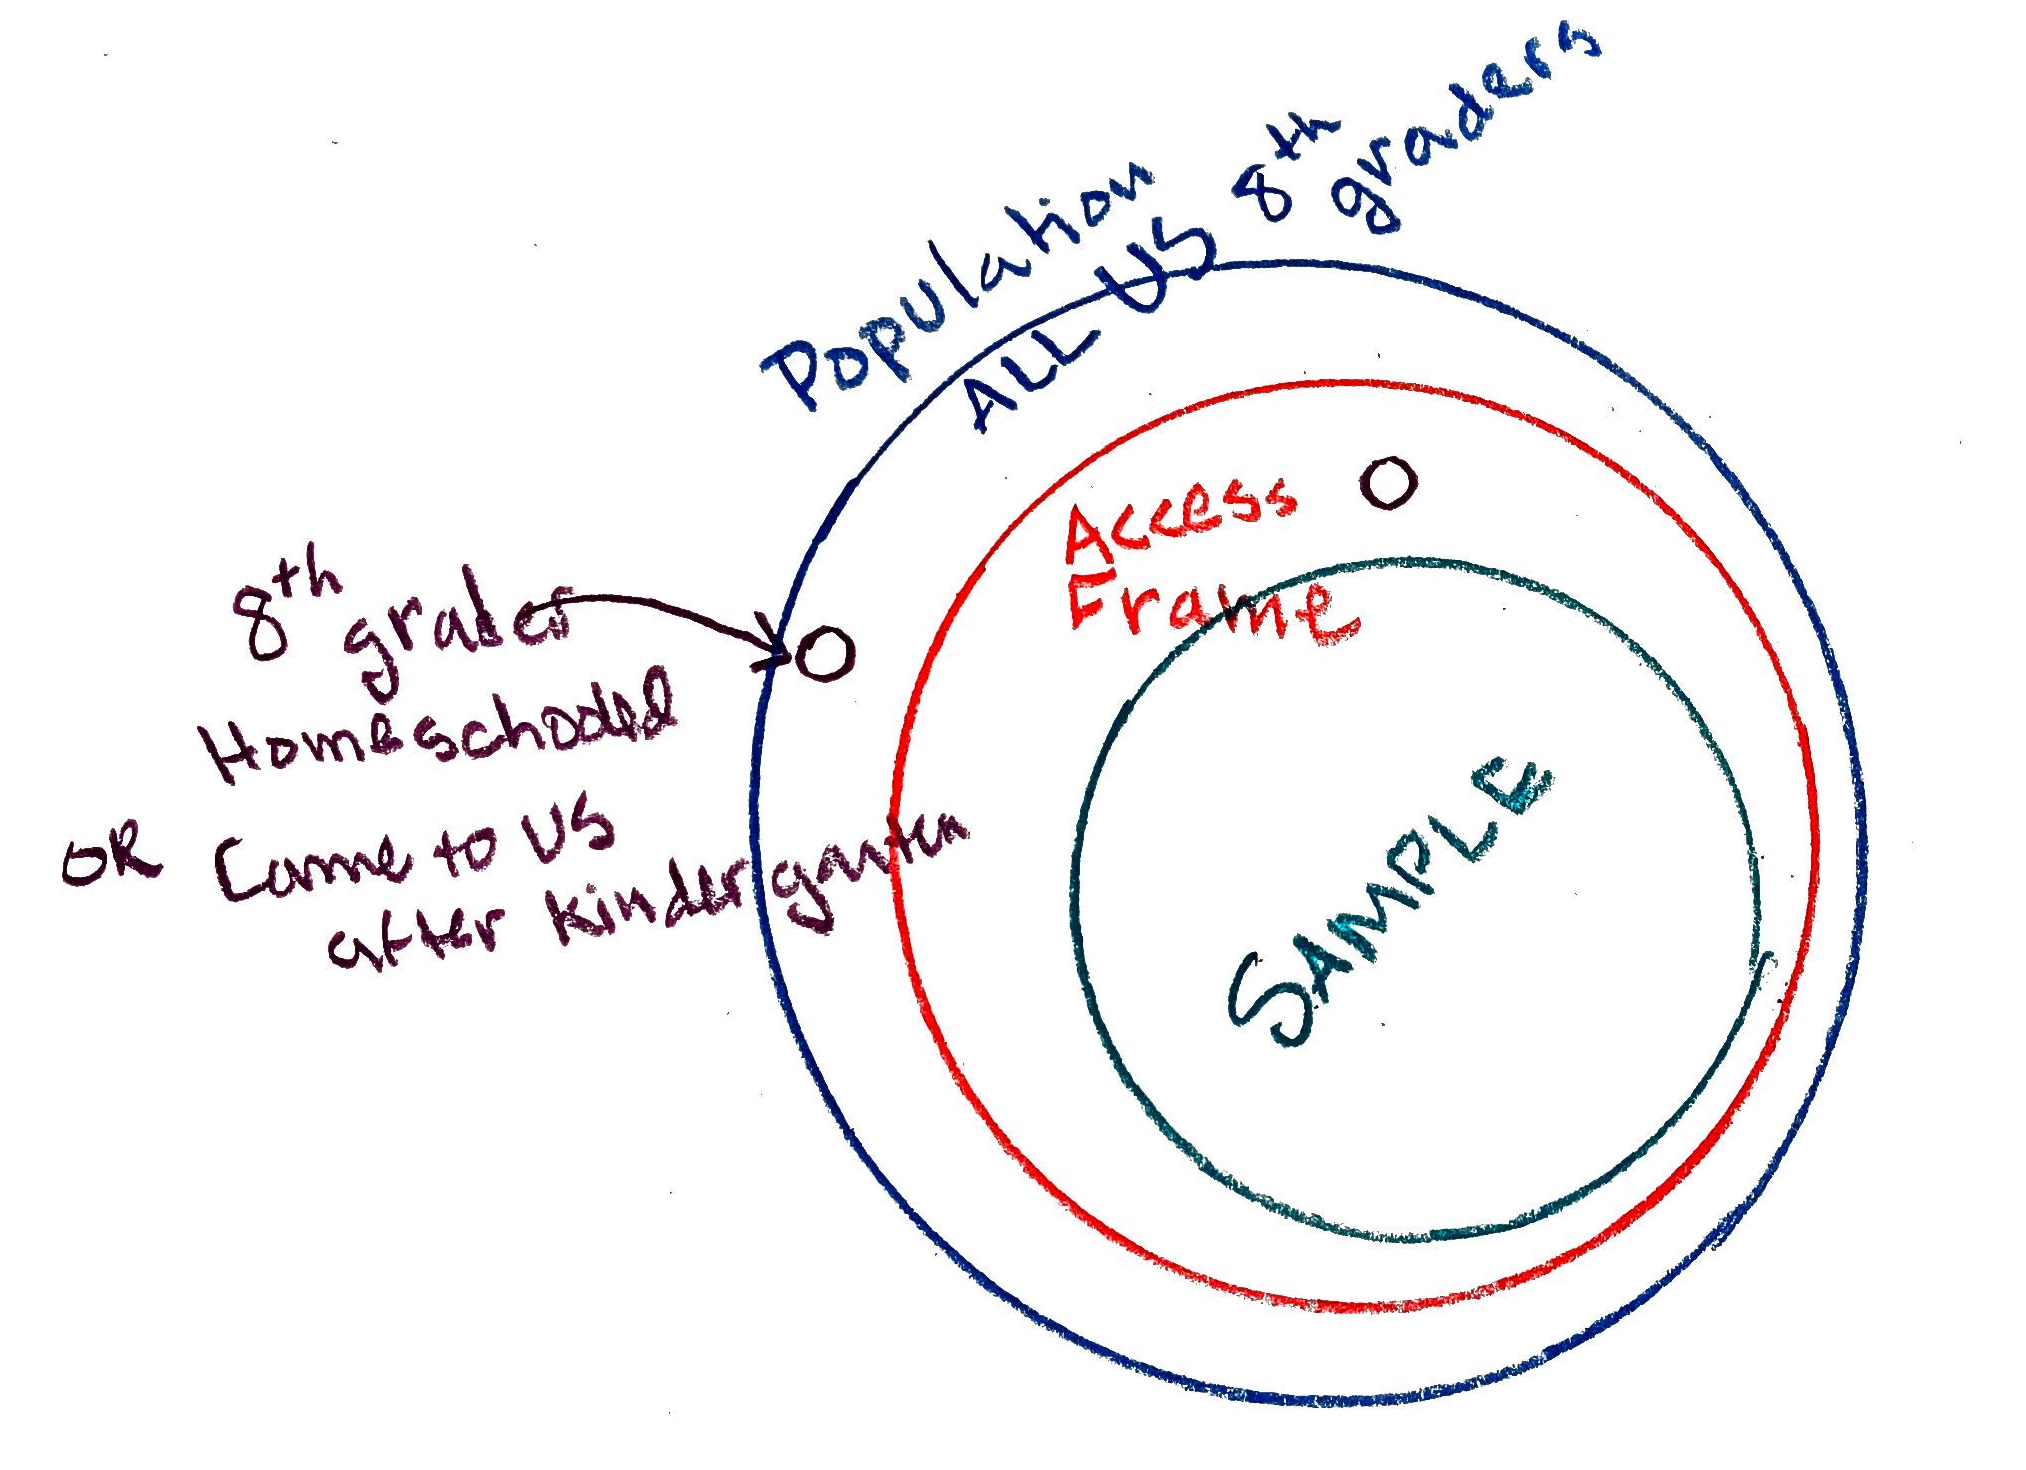 Population
ALL US 8th graders
Access
Frame
SAMPLE
8th grader
Homeschooled
OR Came to US
after kindergarten